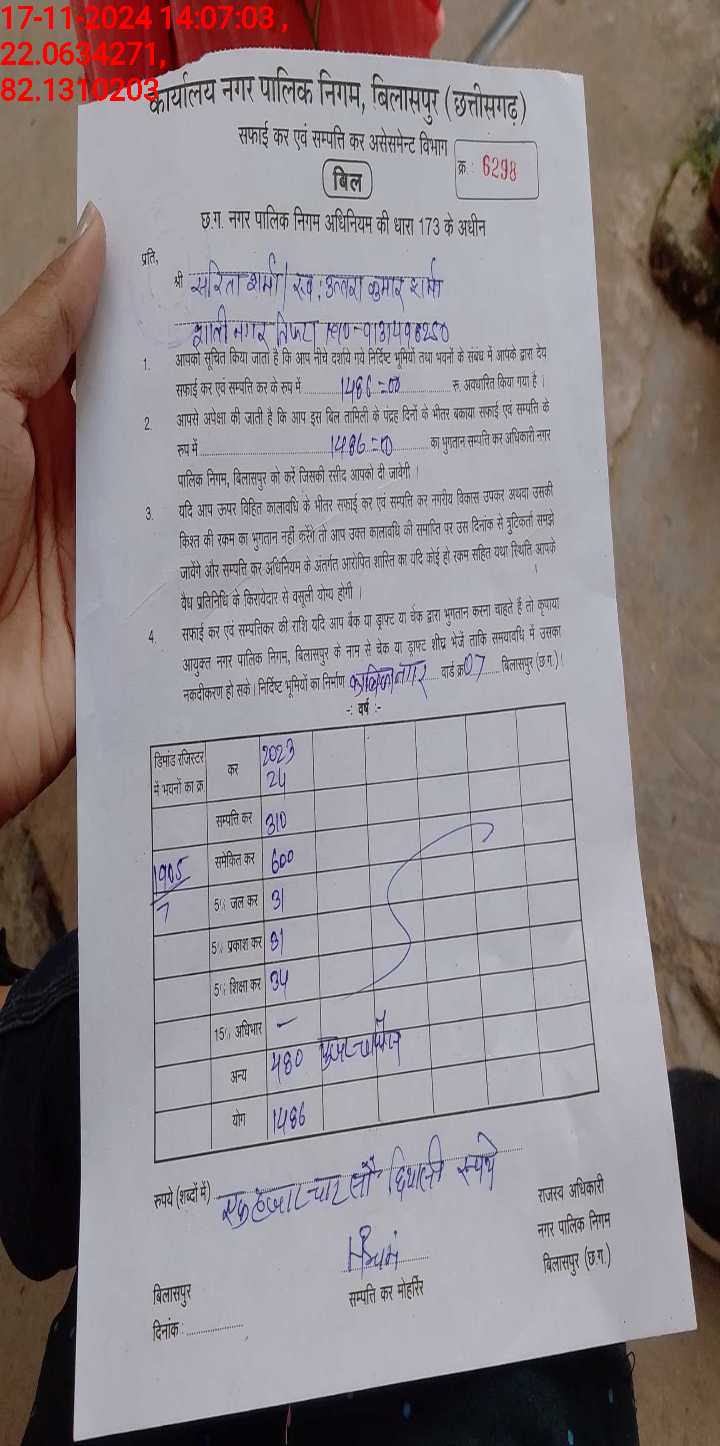 17-11-2024 14:07:03,
22.0634271,
82.1310203
कार्यालय नगर पालिक निगम, बिलासपुर (छत्तीसगढ़)
सफाई कर एवं सम्पत्ति कर असेसमेन्ट विभाग
क्र : 6298
बिल
छ.ग. नगर पालिक निगम अधिनियम की धारा 173 के अधीन
प्रति,
श्री सरिता शर्मा / स्व. कुमार शर्मा
नगर तिफरा
1. आपको सूचित किया जाता है कि आप नीचे दर्शाये गये निर्दिष्ट भूमियों तथा भवनों के संबंध में आपके द्वारा देय
सफाई कर एवं सम्पत्ति कर के रूप में 1486=00 रु. अवधारित किया गया है ।
2. आपसे अपेक्षा की जाती है कि आप इस बिल तामिली के पंद्रह दिनों के भीतर बकाया सफाई एवं सम्पत्ति के
रूप में 1486=0 का भुगतान सम्पत्ति कर अधिकारी नगर
पालिक निगम, बिलासपुर को करें जिसकी रसीद आपको दी जावेगी ।
3. यदि आप ऊपर विहित कालावधि के भीतर सफाई कर एवं सम्पत्ति कर नगरीय विकास उपकर अथवा उसकी
किश्त की रकम का भुगतान नहीं करेंगे तो आप उक्त कालावधि की समाप्ति पर उस दिनांक से त्रुटिकर्ता समझे
जावेंगे और सम्पत्ति कर अधिनियम के अंतर्गत आरोपित शास्ति का यदि कोई हो रकम सहित यथा स्थिति आपके
वैध प्रतिनिधि के किरायेदार से वसूली योग्य होगी ।
4. सफाई कर एवं सम्पत्तिकर की राशि यदि आप बैंक या ड्राफ्ट या चेक द्वारा भुगतान करना चाहते हैं तो कृपाया
आयुक्त नगर पालिक निगम, बिलासपुर के नाम से चेक या ड्राफ्ट शीघ्र भेजें ताकि समयावधि में उसका
नकदीकरण हो सके। निर्दिष्ट भूमियों का निर्माण कालिका नगर वार्ड क्र. 07 बिलासपुर (छ.ग.)।
-: वर्ष :-
डिमांड रजिस्टर में भवनों का क्र कर 2023 24
सम्पत्ति कर 310
1905/7 समेकित कर 600
5% जल कर 31
5% प्रकाश कर 31
5% शिक्षा कर 34
15% अधिभार -
अन्य 480
योग 1486
रुपये (शब्दों में) एक हजार चार सौ छियासी रूपये
राजस्व अधिकारी
नगर पालिक निगम
बिलासपुर (छ.ग.)
सम्पत्ति कर मोहर्रिर
बिलासपुर
दिनांक :